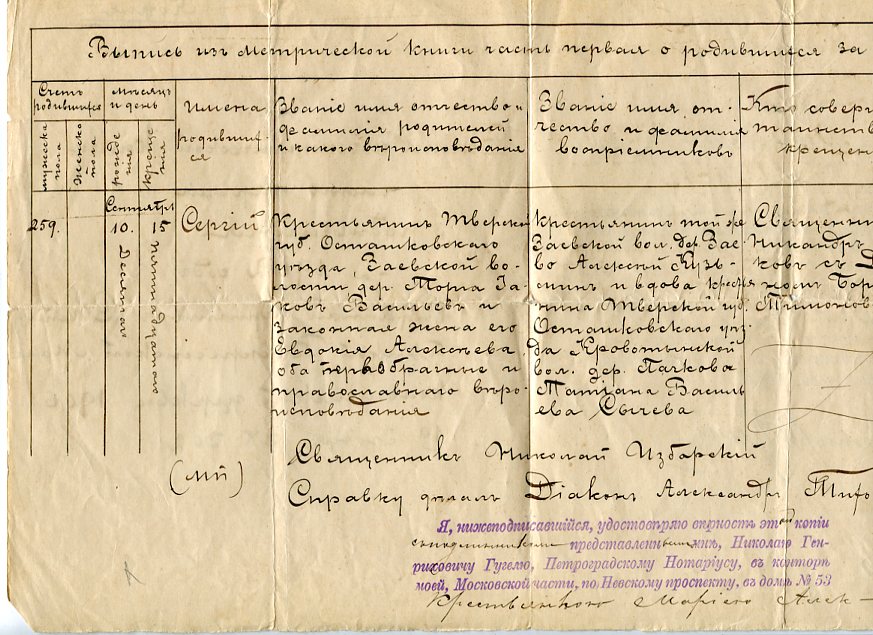 Выпись изъ метрической книги часть первая о родившихся за
Счетъ родившихся
мужеска пола
женска пола
Мѣсяцъ и день
рожденія
крещенія
Имена
родивших-
ся
Званіе имя отчество и
фамилія родителей
и какого вѣроисповѣданія
Званіе имя, от-
чество и фамилія
воспріемниковъ
Кто соверш
таинств
крещен
Сентября
259.
10.
Десятаго
15
Пятнадцатаго
Сергій
Крестьянинъ Тверской
губ. Осташковскаго
уѣзда, Заевской во-
лости, дер. Торга Іа-
ковъ Васильевъ и
законная жена его
Евдокія Алексѣева,
оба первобрачные и
православнаго вѣро-
исповѣданія
крестьянинъ той же
Заевской вол. дер. Зае-
во Алексѣй Кузь-
минъ и вдова крестья
нина Тверской губ.
Осташковскаго уѣз-
да Кровотынской
вол. дер. Пачково
Татіана Василь
ева Сычева
Священни
Никандръ
ковъ съ
номъ Бор
Тимонов
Священникъ Николай Изборскій
(МП)
Справку дѣлалъ Діаконъ Александръ
Я, нижеподписавшійся, удостовѣряю вѣрность этой копіи
съ подлинникомъ представленнымъ мнѣ, Николаю Ген-
риховичу Гугелю, Петроградскому Нотаріусу, въ конторѣ
моей, Московской части, по Невскому проспекту, въ домѣ № 53
крестьянкою Маріею Алек-